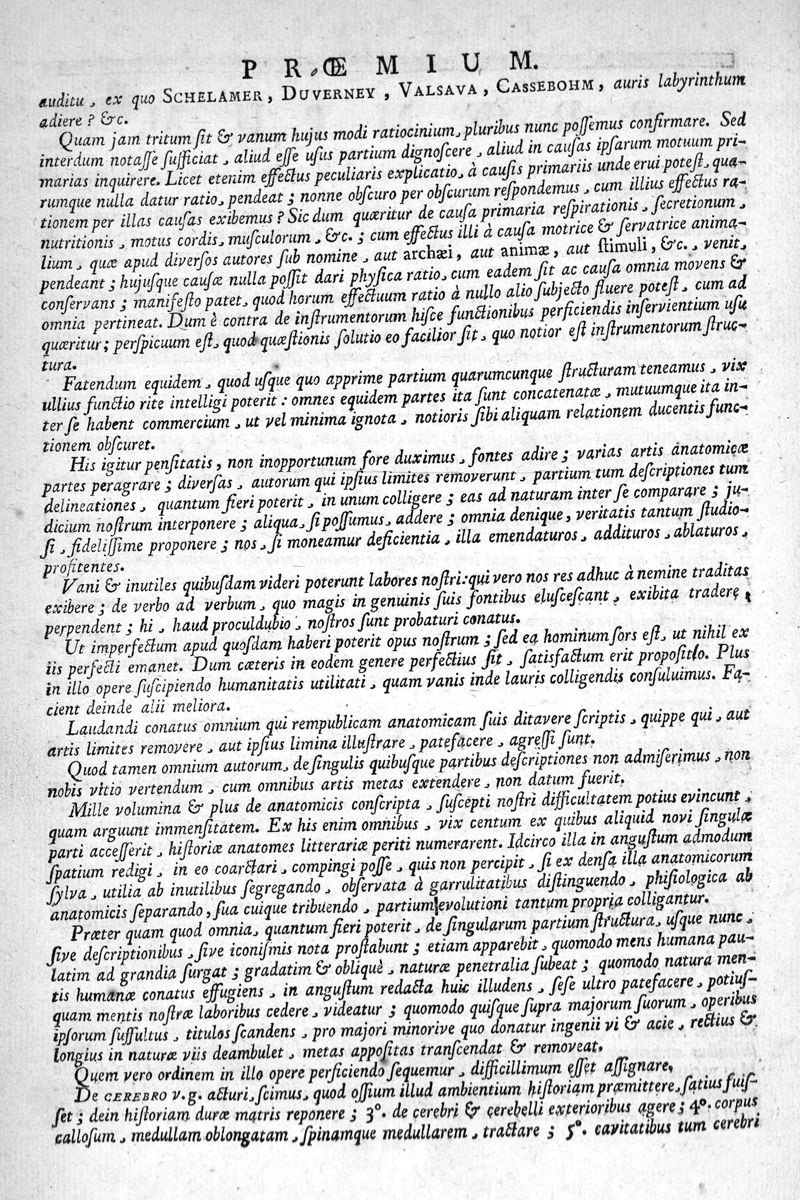 PRŒMIUM.
auditu, ex quo SCHELAMER, DUVERNEY, VALSAVA, CASSEBOHM, auris labyrinthum
adiere? &c.
Quam jam tritum ſit & vanum hujus modi ratiocinium, pluribus nunc poſſemus confirmare. Sed
interdum notaſſe ſufficiat, aliud eſſe uſus partium dignoſcere, aliud in cauſas ipſarum motuum pri-
marias inquirere. Licet etenim effectus peculiaris explicatio, à cauſis primariis unde erui poteſt, qua-
rumque nulla datur ratio, pendeat; nonne obſcuro per obſcurum reſpondemus, cum illius effectus ra-
tionem per illas cauſas exibemus? Sic dum quæritur de cauſa primaria reſpirationis, ſecretionum,
nutritionis, motus cordis, muſculorum, &c.; cum effectus illi à cauſa motrice & ſervatrice anima-
lium, quæ apud diverſos autores ſub nomine, aut archæi, aut animæ, aut ſtimuli, &c. venit,
pendeant; hujuſque cauſæ nulla poſſit dari phyſica ratio, cum eadem ſit ac cauſa omnia movens &
conſervans; manifeſto patet, quod horum effectuum ratio à nullo alio ſubjecto fluere poteſt, cum ad
omnia pertineat. Dum è contra de inſtrumentorum hiſce functionibus perficiendis inſervientium uſu
quæritur; perſpicuum eſt, quod quæſtionis ſolutio eo facilior ſit, quo notior eſt inſtrumentorum ſtruc-
tura.
Fatendum equidem, quod uſque quo apprime partium quarumcunque ſtructuram teneamus, vix
ullius functio rite intelligi poterit: omnes equidem partes ita ſunt concatenatæ, mutuumque ita in-
ter ſe habent commercium, ut vel minima ignota, notioris ſibi aliquam relationem ducentis func-
tionem obſcuret.
His igitur penſitatis, non inopportunum fore duximus, fontes adire; varias artis anatomicæ
partes peragrare; diverſas, autorum qui ipſius limites removerunt, partium tum deſcriptiones tum
delineationes, quantum fieri poterit, in unum colligere; eas ad naturam inter ſe comparare; ju-
dicium noſtrum interponere; aliqua, ſi poſſumus, addere; omnia denique, veritatis tantum ſtudio-
ſi, fideliſſime proponere; nos, ſi moneamur deficientia, illa emendaturos, addituros, ablaturos,
profitentes.
Vani & inutiles quibuſdam videri poterunt labores noſtri: qui vero nos res adhuc à nemine traditas
exibere; de verbo ad verbum, quo magis in genuinis ſuis fontibus eluſceſcant, exibita tradere,
perpendent; hi, haud proculdubio, noſtros ſunt probaturi conatus.
Ut imperfectum apud quoſdam haberi poterit opus noſtrum; ſed ea hominum ſors eſt, ut nihil ex
iis perfecti emanet. Dum cæteris in eodem genere perfectius ſit, ſatisfactum erit propoſitio. Plus
in illo opere ſuſcipiendo humanitatis utilitati, quam vanis inde lauris colligendis conſuluimus. Fa-
cient deinde alii meliora.
Laudandi conatus omnium qui rempublicam anatomicam ſuis ditavere ſcriptis, quippe qui, aut
artis limites removere, aut ipſius limina illuſtrare, patefacere, agreſſi ſunt.
Quod tamen omnium autorum, de ſingulis quibuſque partibus deſcriptiones non admiſerimus, non
nobis vitio vertendum, cum omnibus artis metas extendere, non datum fuerit.
Mille volumina & plus de anatomicis conſcripta, ſuſcepti noſtri difficultatem potius evincunt,
quam arguunt immenſitatem. Ex his enim omnibus, vix centum ex quibus aliquid novi ſingulæ
parti acceſſerit, hiſtoriæ anatomes litterariæ periti numerarent. Idcirco illa in anguſtum admodum
ſpatium redigi, in eo coarctari, compingi poſſe, quis non percipit, ſi ex denſa illa anatomicorum
ſylva, utilia ab inutilibus ſegregando, obſervata à garrulitatibus diſtinguendo, phiſiologica ab
anatomicis ſeparando, ſua cuique tribuendo, partium evolutioni tantum propria colligantur.
Præter quam quod omnia, quantum fieri poterit, de ſingularum partium ſtructura, uſque nunc,
ſive deſcriptionibus, ſive iconiſmis nota proſtabunt; etiam apparebit, quomodo mens humana pau-
latim ad grandia ſurgat; gradatim & obliquè, naturæ penetralia ſubeat; quomodo natura men-
tis humanæ conatus effugiens, in anguſtum redacta huic illudens, ſeſe ultro patefacere, potiuſ-
quam mentis noſtræ laboribus cedere, videatur; quomodo quiſque ſupra majorum ſuorum, operibus
ipſorum ſuffultus, titulos ſcandens, pro majori minorive quo donatur ingenii vi & acie, rectius &
longius in naturæ viis deambulet, metas appoſitas tranſcendat & removeat.
Quem vero ordinem in illo opere perficiendo ſequemur, difficillimum eſſet aſſignare.
De CEREBRO v. g. acturi, ſcimus, quod oſſium illud ambientium hiſtoriam præmittere, ſatius fuiſ-
ſet; dein hiſtoriam duræ matris reponere; 3°. de cerebri & cerebelli exterioribus agere; 4°. corpus
calloſum, medullam oblongatam, ſpinamque medullarem, tractare; 5°. cavitatibus tum cerebri